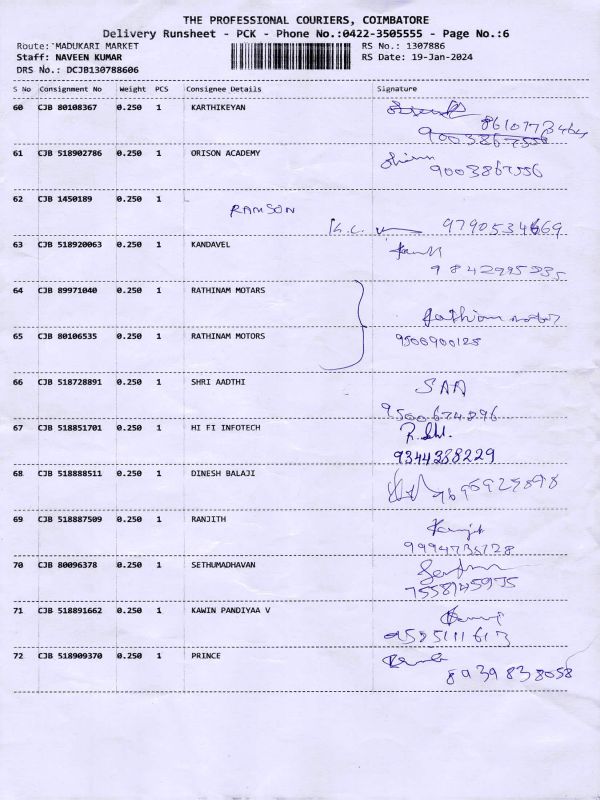 THE PROFESSIONAL COURIERS, COIMBATORE
Delivery Runsheet - PCK - Phone No.:0422-3505555 - Page No.:6
Route: MADUKARI MARKET RS No.: 1307886
Staff: NAVEEN KUMAR RS Date: 19-Jan-2024
DRS No.: DCJB130788606
S No Consignment No Weight PCS Consignee Details Signature
60 CJB 80108367 0.250 1 KARTHIKEYAN
9003867556
61 CJB 518902786 0.250 1 ORISON ACADEMY
9003867556
62 CJB 1450189 0.250 1
RAMSON
K.C. 9790534669
63 CJB 518920063 0.250 1 KANDAVEL
64 CJB 89971040 0.250 1 RATHINAM MOTARS
Rathinam motors
65 CJB 80106535 0.250 1 RATHINAM MOTORS
9500900128
66 CJB 518728891 0.250 1 SHRI AADTHI
SAA
9500674896
67 CJB 518851701 0.250 1 HI FI INFOTECH
9344388229
68 CJB 518888511 0.250 1 DINESH BALAJI
69 CJB 518887509 0.250 1 RANJITH
Ranjit
70 CJB 80096378 0.250 1 SETHUMADHAVAN
7558145975
71 CJB 518891662 0.250 1 KAWIN PANDIYAA V
72 CJB 518909370 0.250 1 PRINCE
8939838058